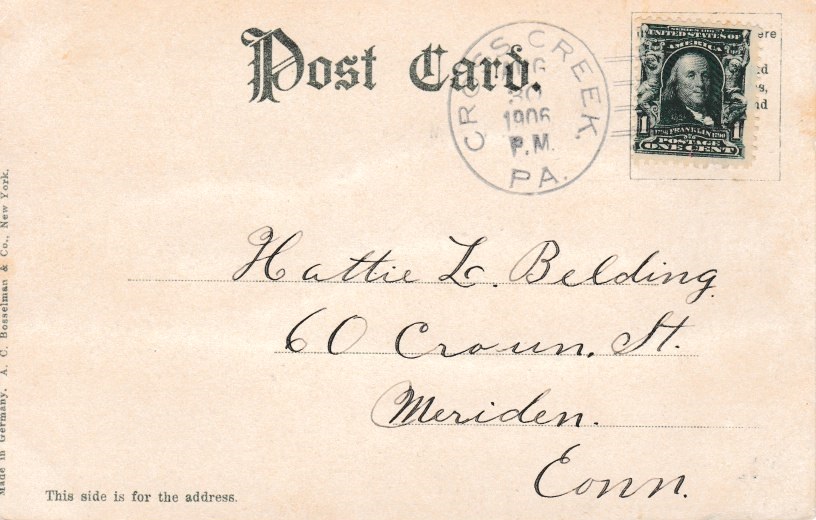 Post Card.
CROSS CREEK,
30
1906
P.M.
PA.
UNITED STATES OF
AMERICA
1 FRANKLIN 1
POSTAGE
ONE CENT
Hattie L. Belding
60 Crown. St.
Meriden.
Conn.
This side is for the address.
Made in Germany. A. C. Bosselman & Co., New York.